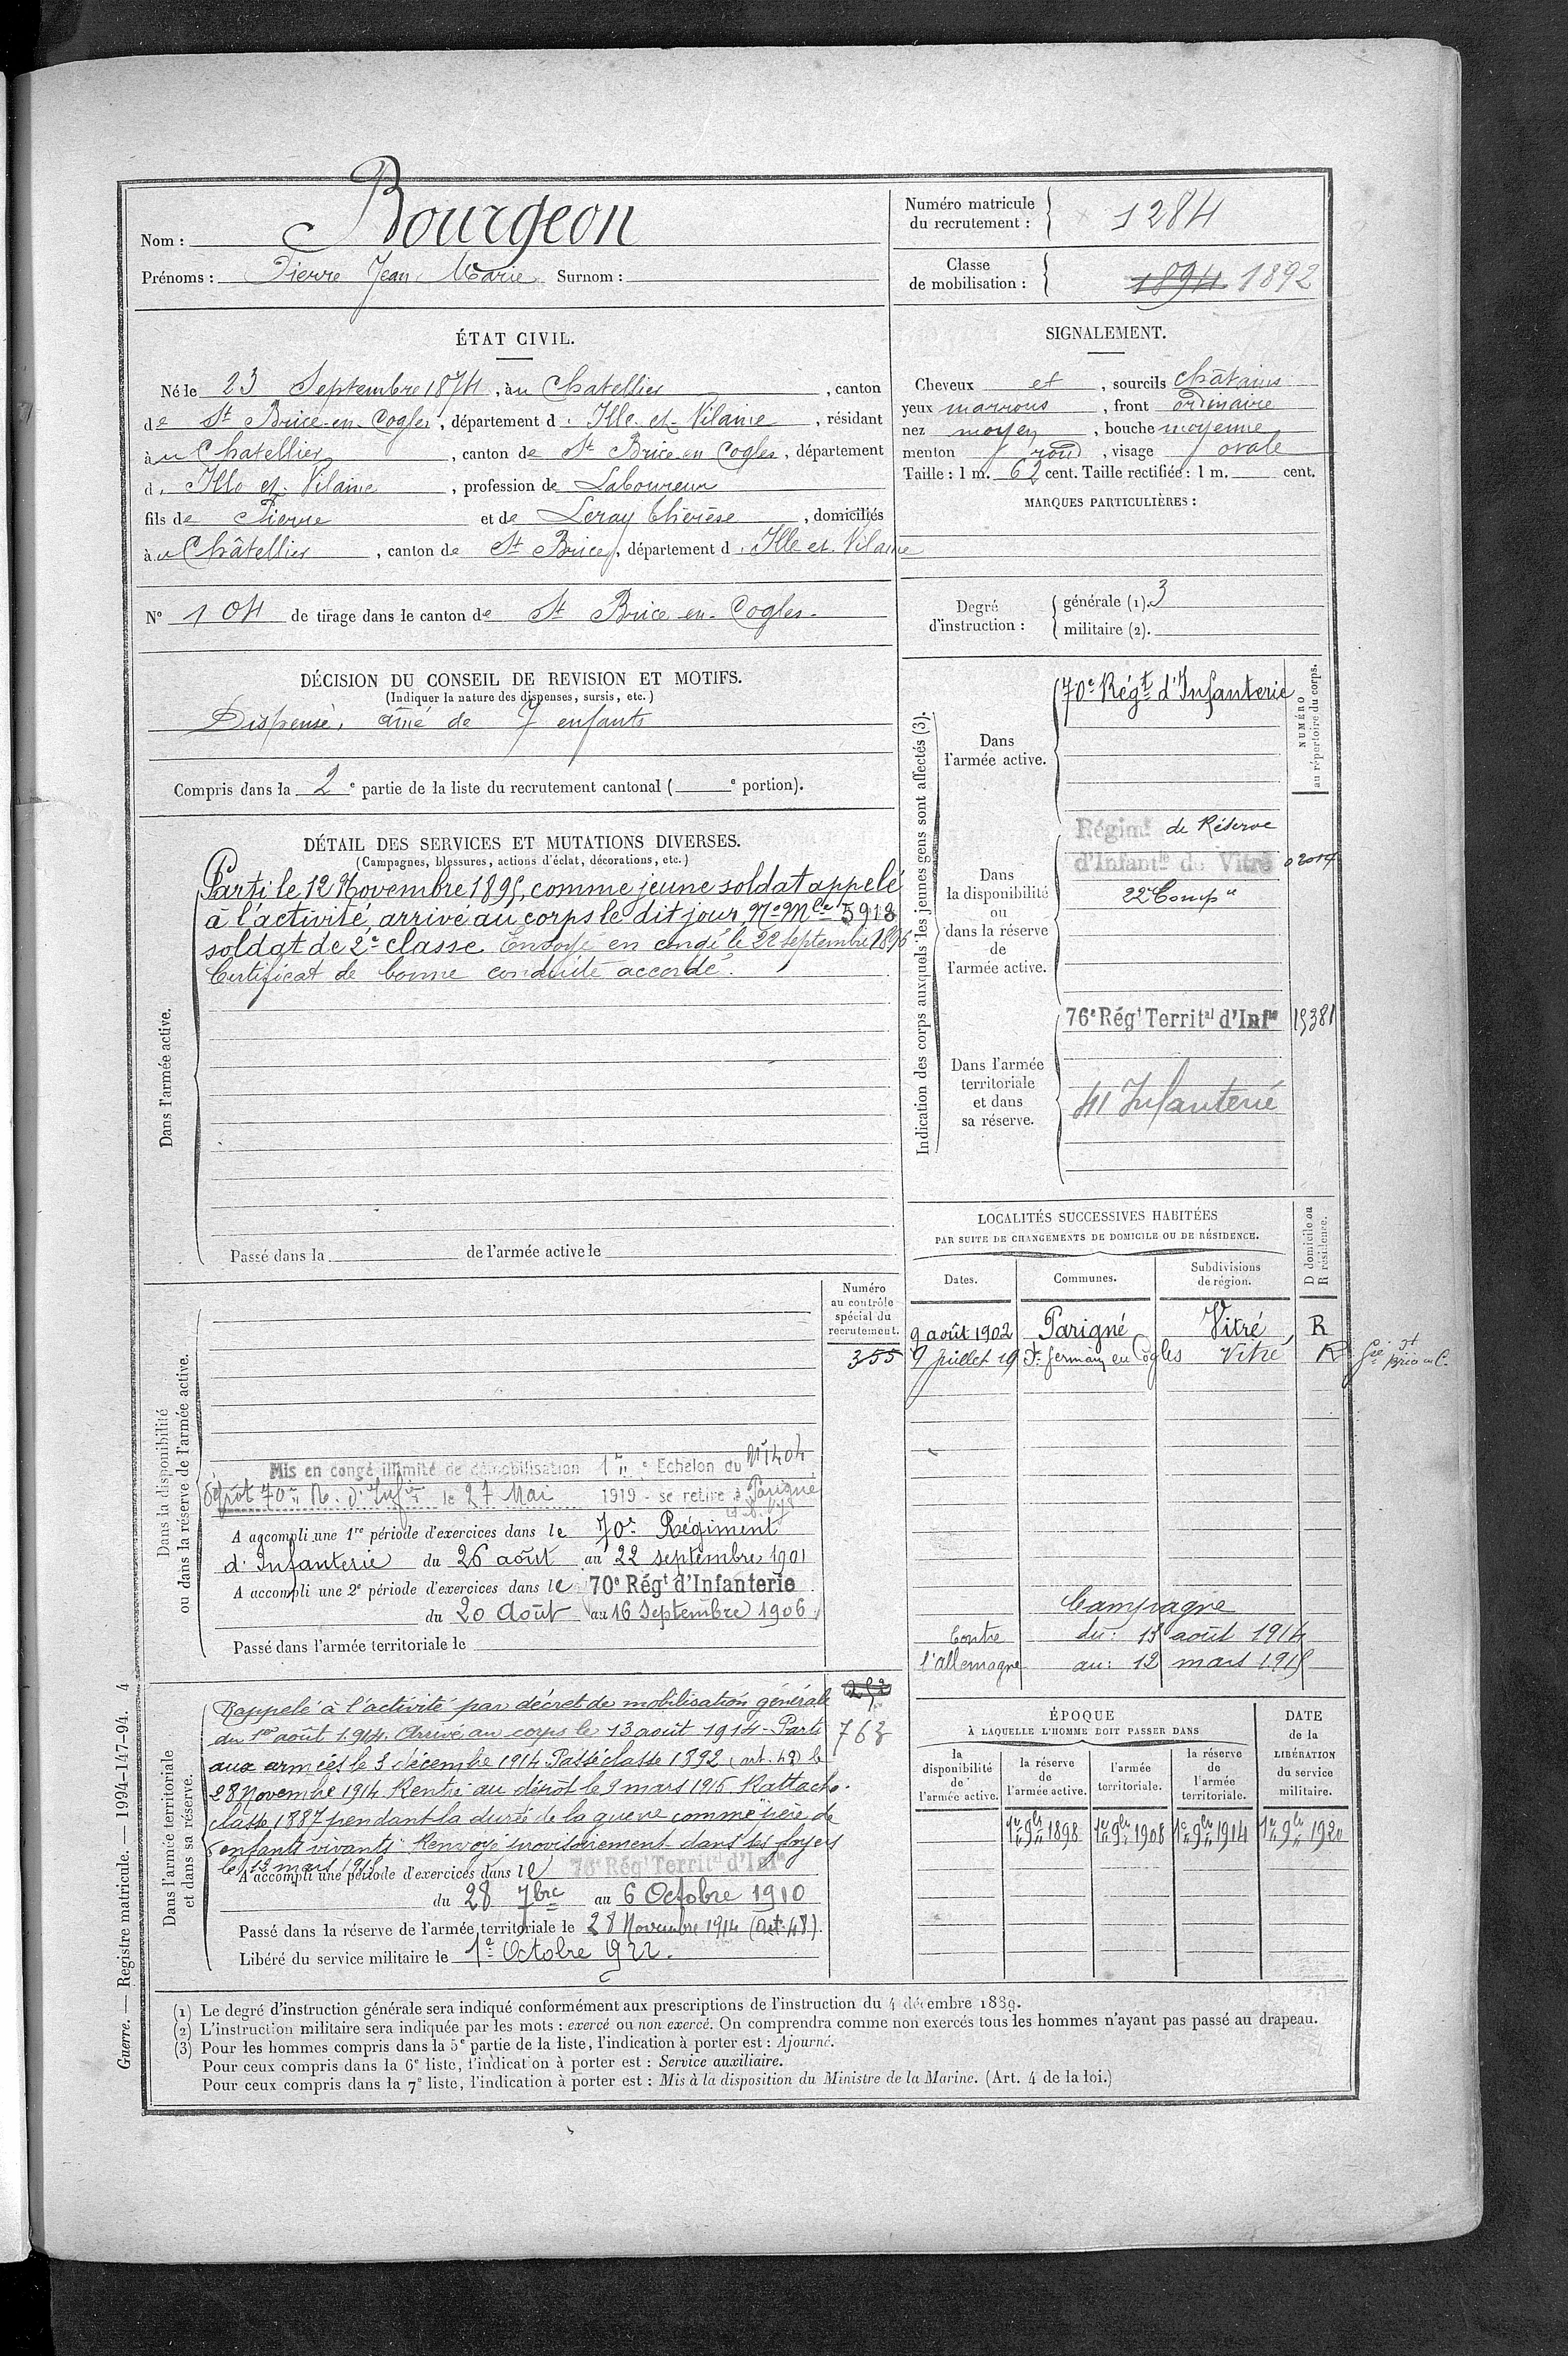 Nom : Bourgeon
Prénoms : Pierre Jean Marie Surnom :
Numéro matricule du recrutement : 1284
Classe de mobilisation : 1894 1892
ÉTAT CIVIL.
Né le 23 Septembre 1874, à u Chatellier, canton
de St Brice-en-Cogles, département d. Ille-et-Vilaine, résidant
à u Chatellier, canton de St Brice en Cogles, département
d. Ille et Vilaine, profession de Laboureur
fils de Pierre et de Leray Thérèse, domiciliés
à u Châtellier, canton de St Brice, département d. Ille et Vilaine
No 104 de tirage dans le canton de St Brice-en-Cogles.
SIGNALEMENT.
Cheveux et, sourcils châtains
yeux marrons, front ordinaire
nez moyen, bouche moyenne
menton rond, visage ovale
Taille : 1 m. 62 cent. Taille rectifiée : 1 m. cent.
MARQUES PARTICULIÈRES :
Degré d'instruction :
générale (1). 3
militaire (2).
DÉCISION DU CONSEIL DE REVISION ET MOTIFS.
(Indiquer la nature des dispenses, sursis, etc.)
Dispensé, aîné de 7 enfants
Compris dans la 2e partie de la liste du recrutement cantonal ( e portion).
DÉTAIL DES SERVICES ET MUTATIONS DIVERSES.
(Campagnes, blessures, actions d'éclat, décorations, etc.)
Dans l'armée active.
Parti le 12 Novembre 1895, comme jeune soldat appelé
à l'activité, arrivé au corps le dit jour, No Mle 5913
soldat de 2e classe. Envoyé en congé le 22 septembre 1896
Certificat de bonne conduite accordé.
Passé dans la de l'armée active le
Indication des corps auxquels les jeunes gens sont affectés (3).
NUMÉRO au répertoire du corps.
Dans l'armée active.
70e Régt d'Infanterie
Dans la disponibilité ou dans la réserve de l'armée active.
Régimt de Réserve
d'Infantie de Vitré
22e Compie
Dans l'armée territoriale et dans sa réserve.
76e Régt Territal d'Infie 15381
41 Infanterie
LOCALITÉS SUCCESSIVES HABITÉES
PAR SUITE DE CHANGEMENTS DE DOMICILE OU DE RÉSIDENCE.
Dates. Communes. Subdivisions de région. D domicile ou R résidence.
9 août 1902 Parigné Vitré R
9 juillet 19 St Germain en Cogles Vitré R
Campagne
Contre du : 13 août 1914
l'allemagne au : 12 mars 1915
Dans la disponibilité ou dans la réserve de l'armée active.
Numéro au contrôle spécial du recrutement.
355
Mis en congé illimité de démobilisation 1er Echelon du No 1404
Dépôt 70e R. d'Infie le 27 Mai 1919 - se retire à Parigné
A accompli une 1re période d'exercices dans le 70e Régiment
d'Infanterie du 26 août au 22 septembre 1901
A accompli une 2e période d'exercices dans le 70e Régt d'Infanterie
du 20 Août au 16 Septembre 1906
Passé dans l'armée territoriale le
Dans l'armée territoriale et dans sa réserve.
763
Rappelé à l'activité par décret de mobilisation générale
du 1er août 1914. Arrivé au corps le 13 août 1914 - Parti
aux armées le 3 décembre 1914. Passé classe 1892 (art. 48) le
28 Novembre 1914 Rentré au dépôt le 9 mars 1915 Rattaché
classe 1887 pendant la durée de la guerre comme père de
enfants vivants. Renvoyé provisoirement dans ses foyers
le 13 mars
A accompli une période d'exercices dans le 76e Régt Territal d'Infie
du 28 7bre au 6 Octobre 1910
Passé dans la réserve de l'armée territoriale le 28 Novembre 1914 (art. 48).
Libéré du service militaire le 1er Octobre 1922.
ÉPOQUE
À LAQUELLE L'HOMME DOIT PASSER DANS
la disponibilité de l'armée active. la réserve de l'armée active. l'armée territoriale. la réserve de l'armée territoriale.
DATE de la LIBÉRATION du service militaire.
1er 9bre 1898 1er 9bre 1908 1er 9bre 1914 1er 9bre 1920
(1) Le degré d'instruction générale sera indiqué conformément aux prescriptions de l'instruction du 4 décembre 1889.
(2) L'instruction militaire sera indiquée par les mots : exercé ou non exercé. On comprendra comme non exercés tous les hommes n'ayant pas passé au drapeau.
(3) Pour les hommes compris dans la 5e partie de la liste, l'indication à porter est : Ajourné.
Pour ceux compris dans la 6e liste, l'indication à porter est : Service auxiliaire.
Pour ceux compris dans la 7e liste, l'indication à porter est : Mis à la disposition du Ministre de la Marine. (Art. 4 de la loi.)
Guerre. — Registre matricule. — 1994-147-94. 4